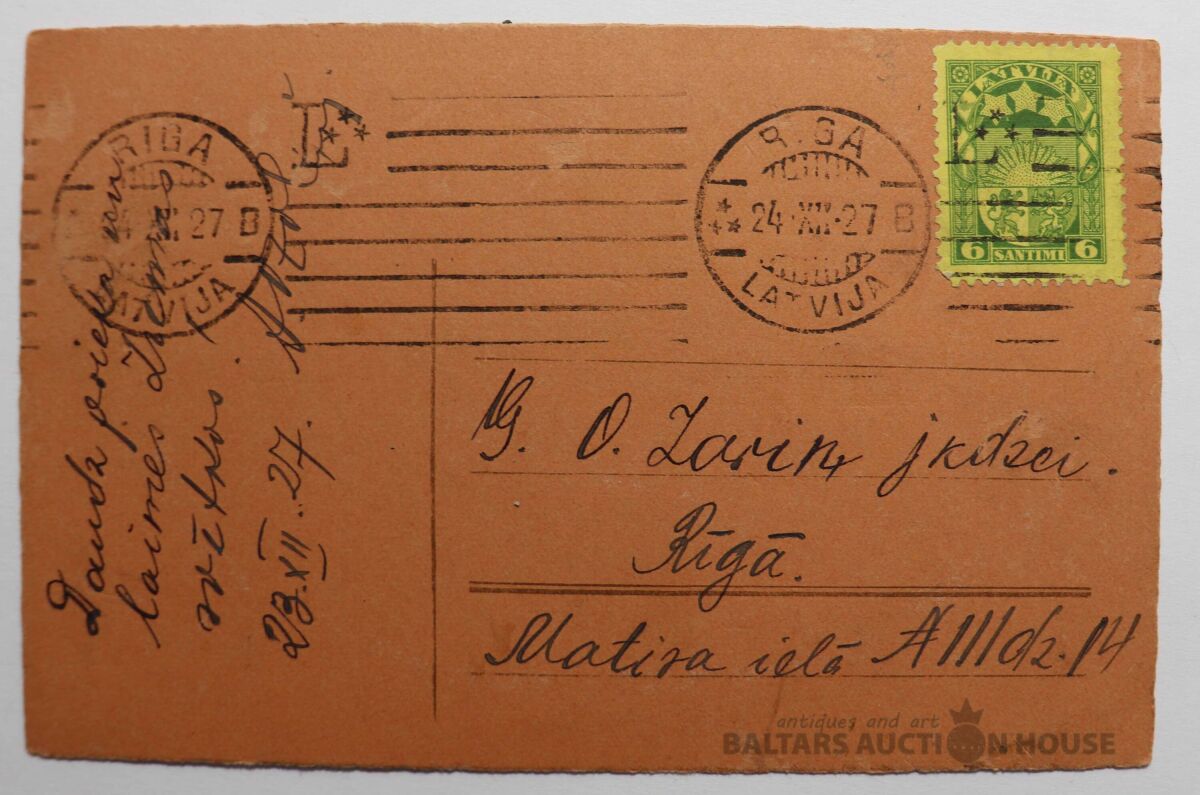 Daudz prieka un
laimes Ziemas
svētkos.
23.XII.27.
RIGA
24.XII.27 B
LATVIJA
L
RIGA
24.XII.27 B
LATVIJA
L
LATVIJA
6 SANTIMI 6
G. O. Zariņ jkdzei.
Rīgā.
Matisa ielā dz. 14
antiques and art
BALTARS AUCTION HOUSE